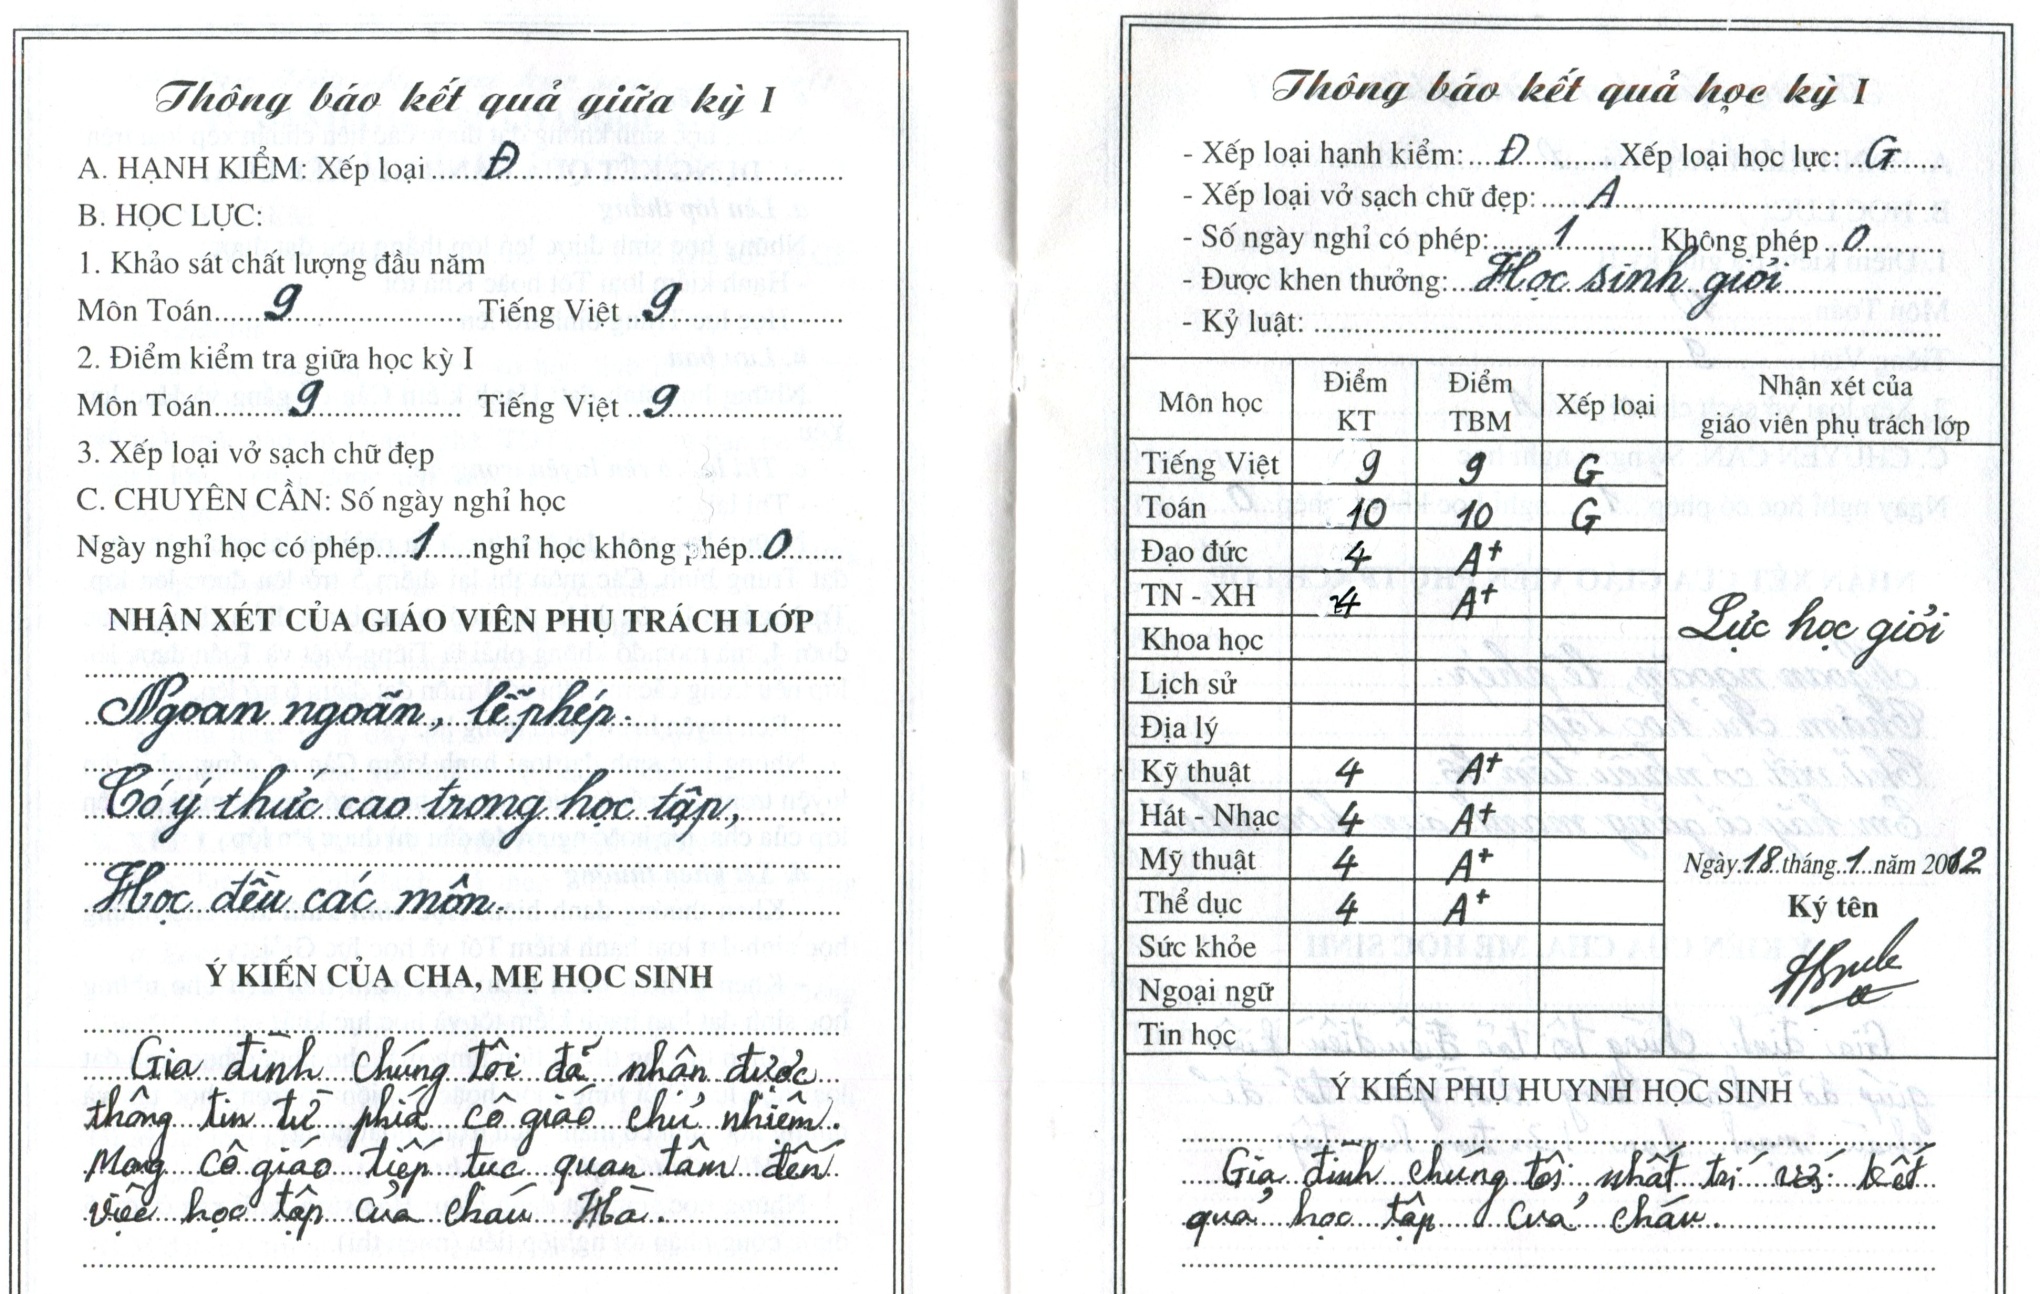 Thông báo kết quả giữa kỳ I
A. HẠNH KIỂM: Xếp loại......Đ......
B. HỌC LỰC:
1. Khảo sát chất lượng đầu năm
Môn Toán......9...... Tiếng Việt ..9......
2. Điểm kiểm tra giữa học kỳ I
Môn Toán......9...... Tiếng Việt ..9......
3. Xếp loại vở sạch chữ đẹp
C. CHUYÊN CẦN: Số ngày nghỉ học
Ngày nghỉ học có phép...1.....nghỉ học không phép..0......
NHẬN XÉT CỦA GIÁO VIÊN PHỤ TRÁCH LỚP
Ngoan ngoãn, lễ phép.
Có ý thức cao trong học tập,
Học đều các môn.
Ý KIẾN CỦA CHA, MẸ HỌC SINH
Gia đình chúng tôi đã nhân được
thông tin từ phía cô giáo chủ nhiêm.
Mong cô giáo tiếp tuc quan tâm đến
việc học tập của cháu Hà.
Thông báo kết quả học kỳ I
- Xếp loại hạnh kiểm: ..Đ...... Xếp loại học lực: G....
- Xếp loại vở sạch chữ đẹp:....A......
- Số ngày nghỉ có phép:......1...... Không phép ..0......
- Được khen thưởng: Học sinh giỏi
- Kỷ luật: ......
Môn học Điểm KT Điểm TBM Xếp loại Nhận xét của giáo viên phụ trách lớp
Tiếng Việt 9 9 G
Toán 10 10 G
Đạo đức 4 A+
TN - XH 4 A+
Lực học giỏi
Khoa học
Lịch sử
Địa lý
Kỹ thuật 4 A+
Hát - Nhạc 4 A+
Mỹ thuật 4 A+
Ngày 18 tháng 1 năm 2012
Thể dục 4 A+
Ký tên
Sức khỏe
Ngoại ngữ
Tin học
Ý KIẾN PHỤ HUYNH HỌC SINH
Gia đình chúng tôi nhất trí với kết
quả học tập của cháu.